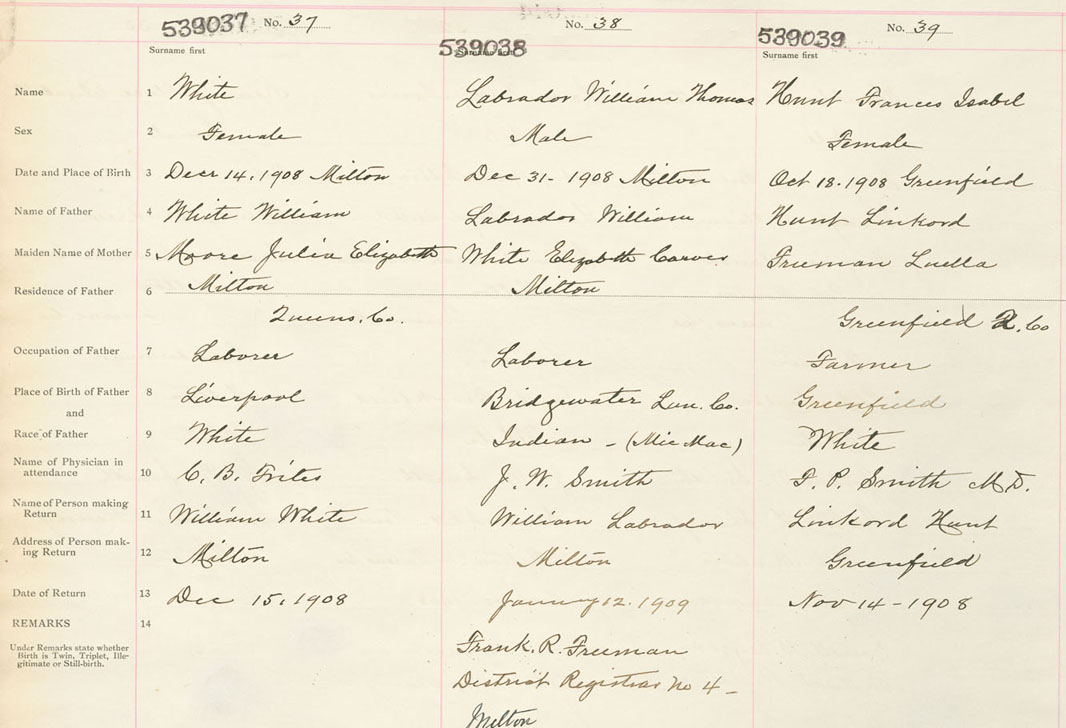 539037 No. 37 539038 No. 38 539039 No. 39
Surname first Surname first Surname first
Name 1 White Labrador William Thomas Hunt Frances Isabel
Sex 2 Female Male Female
Date and Place of Birth 3 Decr 14, 1908 Milton Dec 31- 1908 Milton Oct 18. 1908 Greenfield
Name of Father 4 White William Labrador William Hunt Linkord
Maiden Name of Mother 5 Moore Julia Elizabeth White Elizabeth Carver Freeman Luella
Residence of Father 6 Milton Milton
Queens. Co. Greenfield Q. Co
Occupation of Father 7 Laborer Laborer Farmer
Place of Birth of Father 8 Liverpool Bridgewater Lun. Co. Greenfield
and
Race of Father 9 White Indian - (Mic Mac) White
Name of Physician in
attendance 10 C. B. J. W. Smith F. P. Smith M.D.
Name of Person making
Return 11 William White William Labrador Linkord Hunt
Address of Person mak-
ing Return 12 Milton Milton Greenfield
Date of Return 13 Dec 15, 1908 January 12. 1909 Nov 14 - 1908
REMARKS 14
Under Remarks state whether
Birth is Twin, Triplet, Ille-
gitimate or Still-birth.
Frank. R. Freeman
District Registrar No 4 -
Milton